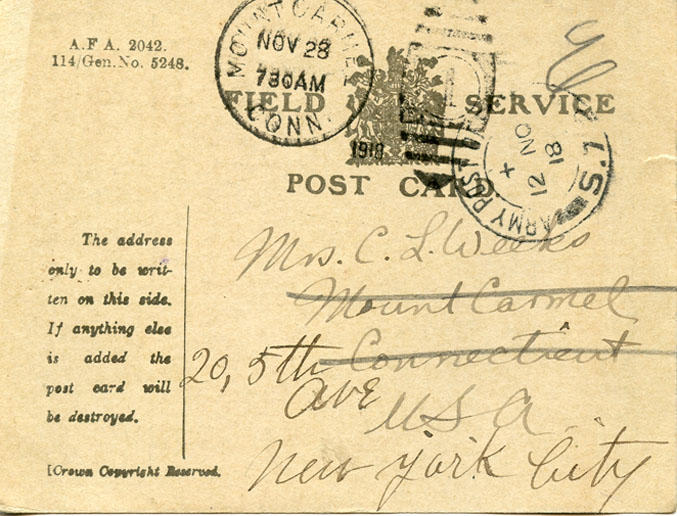 A.F A. 2042.
114/Gen.No. 5248.
MOUNT CARMEL
NOV 28
730AM
1918
CONN.
FIELD SERVICE
POST CARD
ARMY POST
12 NO
18
S.7
The address
only to be writ-
ten on this side.
If anything else
is added the
post card will
be destroyed.
[Crown Copyright Reserved.
Mrs. C. L. Weeks
Mount Carmel
Connecticut
20, 5th
Ave
USA
New York City